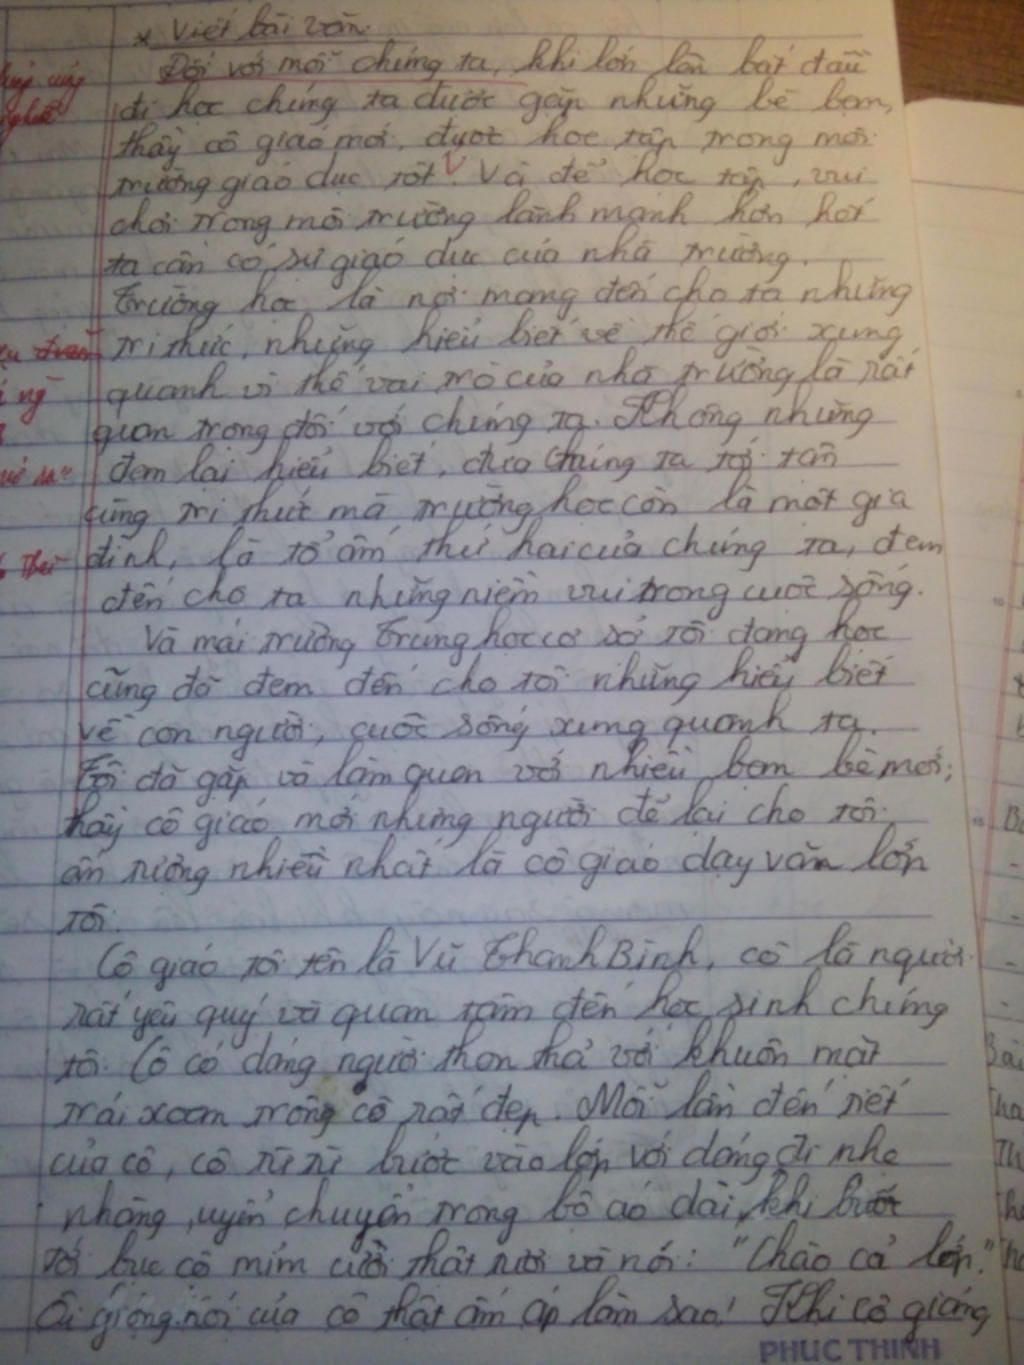 * Viết bài văn.
Đối với mỗi chúng ta, khi lớn lên bắt đầu
đi học chúng ta được gặp những bè bạn,
thầy cô giáo mới, được học tập trong môi
trường giáo dục tốt. Và để học tập, vui
chơi trong môi trường lành mạnh hơn hết
ta cần có sự giáo dục của nhà trường.
Trường học là nơi mang đến cho ta những
tri thức, những hiểu biết về thế giới xung
quanh vì thế vai trò của nhà trường là rất
quan trọng đối với chúng ta. Không những
đem lại hiểu biết, đưa chúng ta tới tận
cùng tri thức mà trường học còn là một gia
đình, là tổ ấm thứ hai của chúng ta, đem
đến cho ta những niềm vui trong cuộc sống.
Và mái trường Trung học cơ sở tôi đang học
cũng đã đem đến cho tôi những hiểu biết
về con người, cuộc sống xung quanh ta.
Tôi đã gặp và làm quen với nhiều bạn bè mới,
thầy cô giáo mới nhưng người để lại cho tôi
ấn tượng nhiều nhất là cô giáo dạy văn lớp
tôi.
Cô giáo tôi tên là Vũ Thanh Bình, cô là người
rất yêu quý và quan tâm đến học sinh chúng
tôi. Cô có dáng người thon thả với khuôn mặt
trái xoan trông cô rất đẹp. Mỗi lần đến tiết
của cô, cô từ từ bước vào lớp với dáng đi nhẹ
nhàng, uyển chuyển trong bộ áo dài, khi bước
tới bục cô mỉm cười thật tươi và nói: "Chào cả lớp."
Ôi giọng nói của cô thật ấm áp làm sao! Khi cô giảng
PHUC THINH